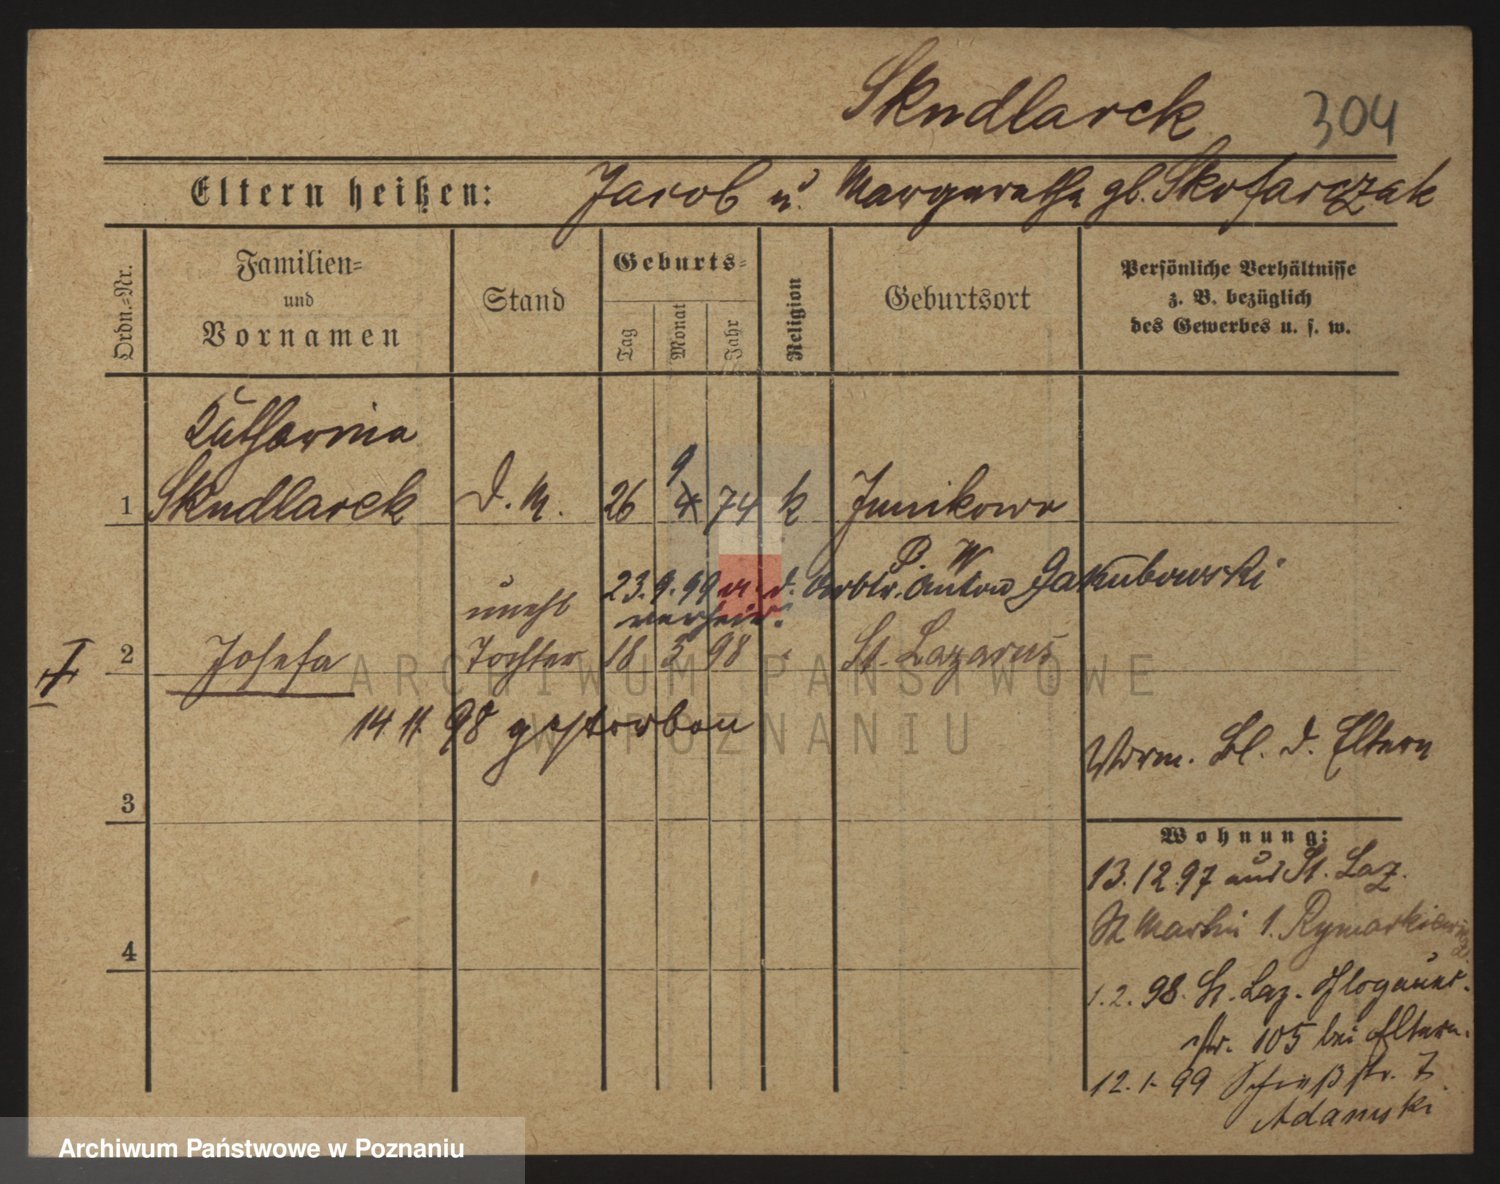 Skudlarek 304
Eltern heißen: Jacob u. Margarethe gb. Skotarczak
Ordn.-Nr.
Familien-
und
Vornamen
Stand
Geburts-
Tag
Monat
Jahr
Religion
Geburtsort
Persönliche Verhältnisse
z. B. bezüglich
des Gewerbes u. s. w.
Katharina
9
1 Skudlarek d. M. 26 4 74 k Junikowo
P. W
unehl 23.9.99 m. d. Arbtr. Anton Jakubowski
verheir.
2 Josefa Tochter 18 5 98 St. Lazarus
14 11 98 gestorben
Vorm. Bl. d. Eltern
3
Wohnung:
13.12.97 aus St. Laz.
St Martin 1. Rymarkiewicz
4
1.2.98. St. Laz. Glogauer-
str. 105 bei Eltern.
12.1.99 Schießstr. 7
Adamski
ARCHIWUM PAŃSTWOWE
W POZNANIU
Archiwum Państwowe w Poznaniu